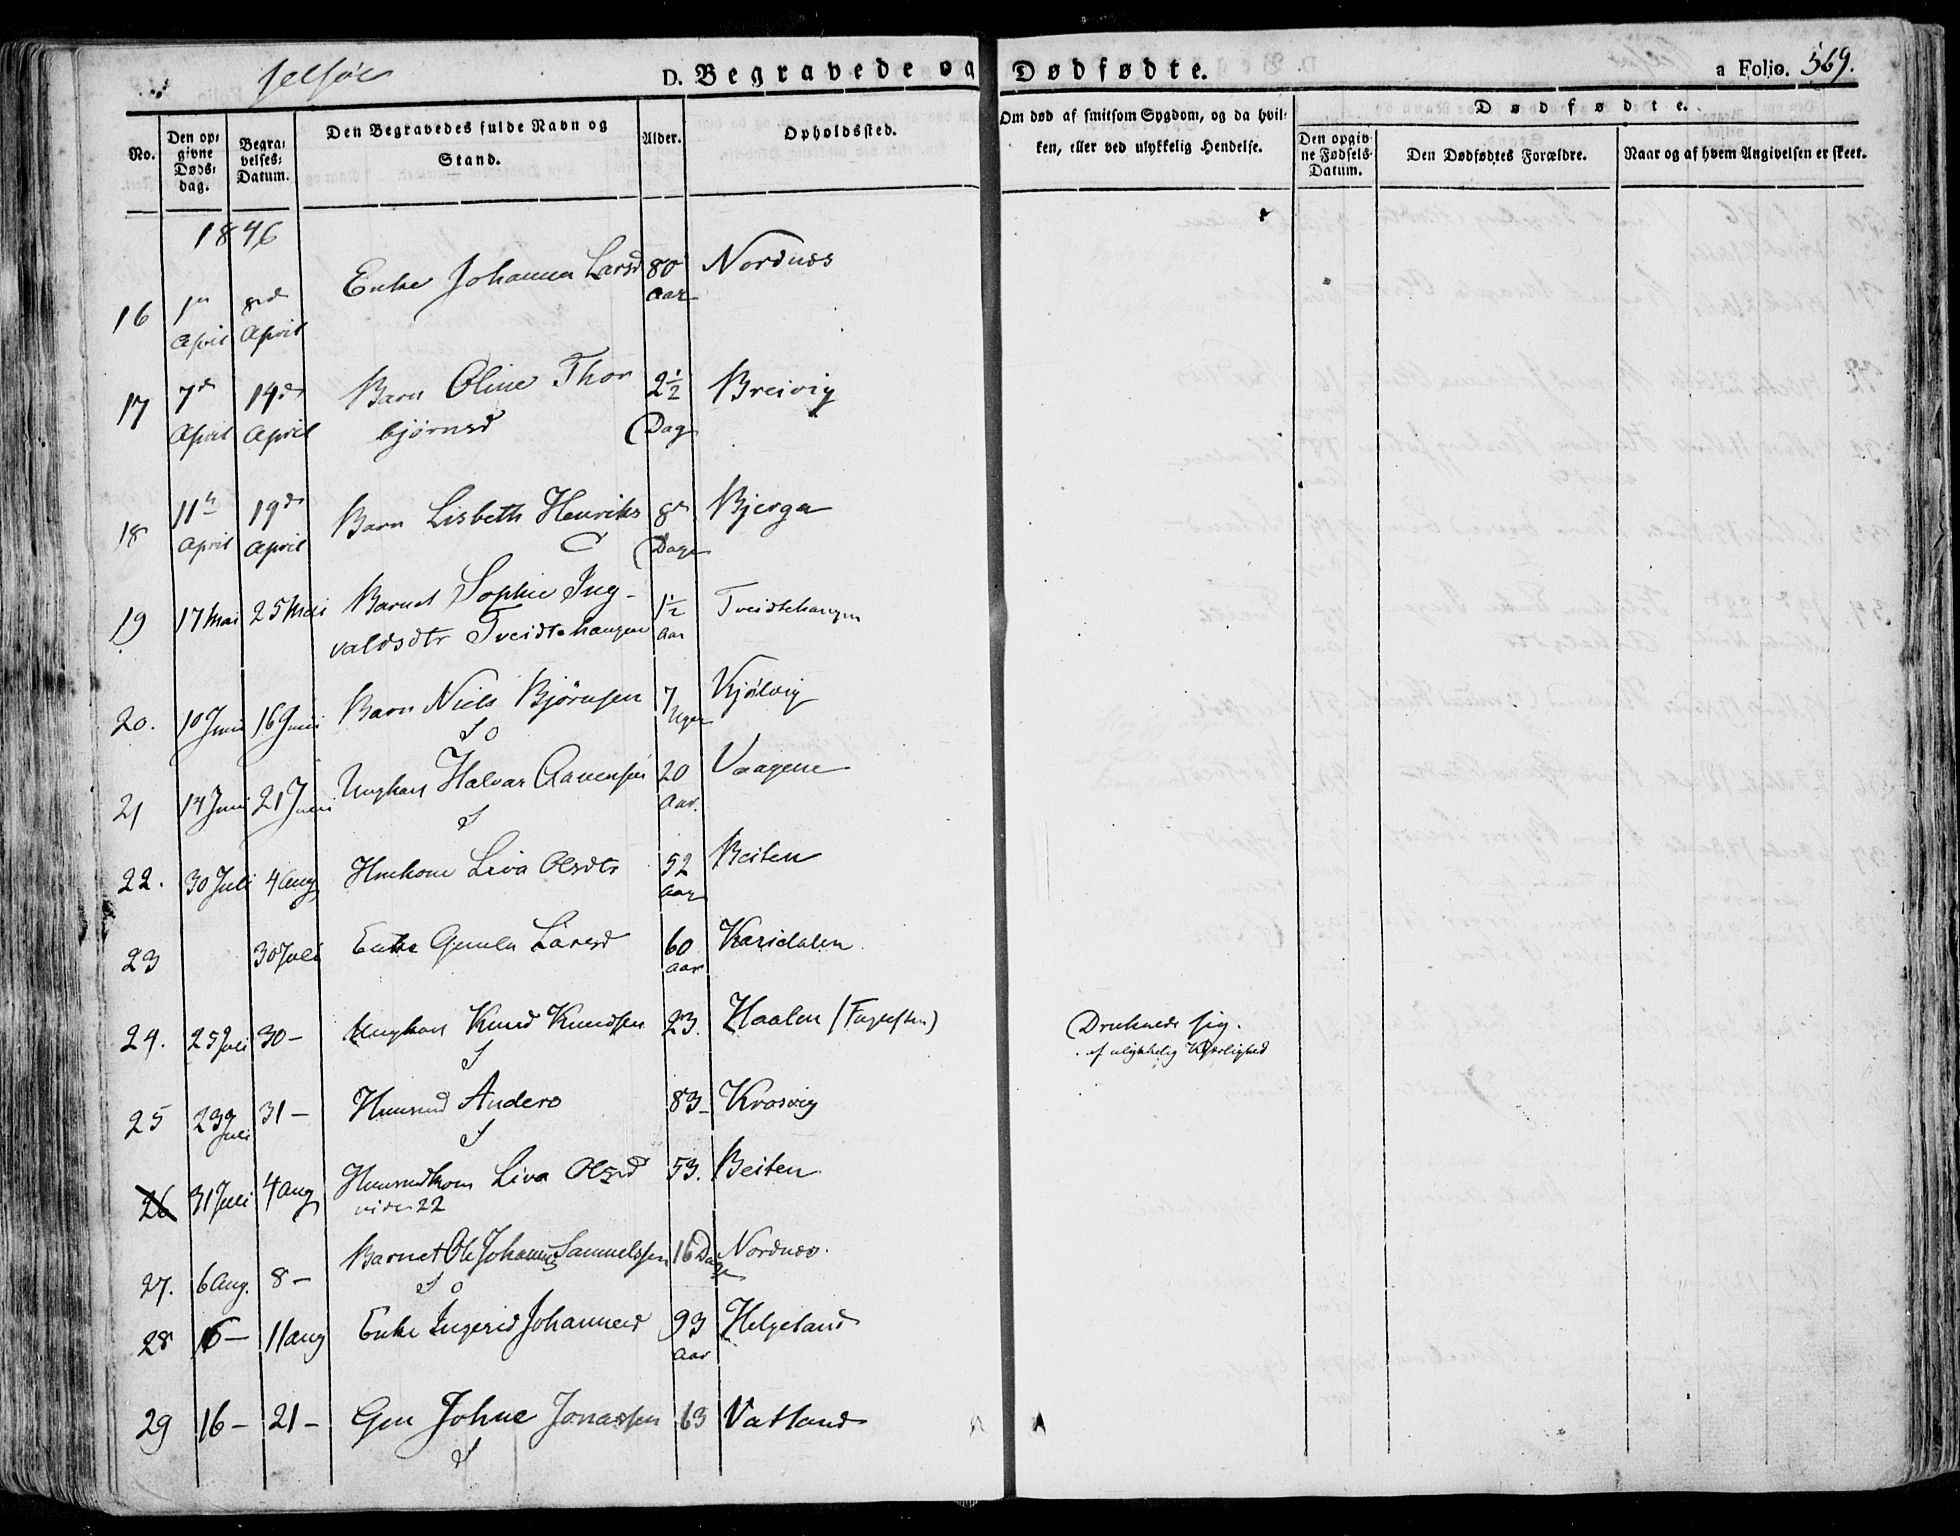 Jelsøe
D. Begravede og Dødfødte.
a Folio. 569.
No.
Den op-
givne
Døds-
dag.
Begra-
velses-
Datum.
Den Begravedes fulde Navn og
Stand.
Alder.
Opholdssted.
Om død af smitsom Sygdom, og da hvil-
ken, eller ved ulykkelig Hendelse.
Dødfødte.
Den opgiv-
ne Fødsels-
Datum.
Den Dødfødtes Forældre.
Naar og af hvem Angivelsen er skeet.
1846
16 April April Enke Johanna Larsd 80 Aar Nordnæs
17 7de April 14de April Barn Oline Thor
bjørnsd 2½ Dag Breivig
18 11te April 19de April Barn Lisbeth Henriks 8te Dage Bjerga
19 17 Mai 25 Mai Barnet Sophie Ing-
valdsdtr Tveidtehaugen 1½ Aar Tveidtehaugen
20. 10 Juni 16 Juni Barn Niels Bjørnsen 7 Uger Kjølvig
21 14 Juni 21 Juni Ungkarl Halvar Aanensen 20 Aar. Vaagene
22. 30 Juli 4 Aug Huuskone Liva Olsdtr 52 Aar Beiten
23 30 Juli Enke Gunla Larsd 60 Aar Karidalen
24. 25 Juli 30 – Ungkarl Knud Knudsen 23. Haalen (Fogesten)
Druknede sig.
af ulykkelig Kjærlighed
25 23 Juli 31 – Huusmd Anders 83 – Krosvig
26 31 Juli 4 Aug Huusmdkone Liva Olsd 53. Beiten
vide 22
27. 6 Aug. 8 – Barnet Ole Johannes Samuelssen 16 Dage Nordnæs.
28 6 – 11 Aug Enke Ingerid Johannesd 93 Aar Helgeland
29 16 – 21 – Johne Jonassen 63 Vatland